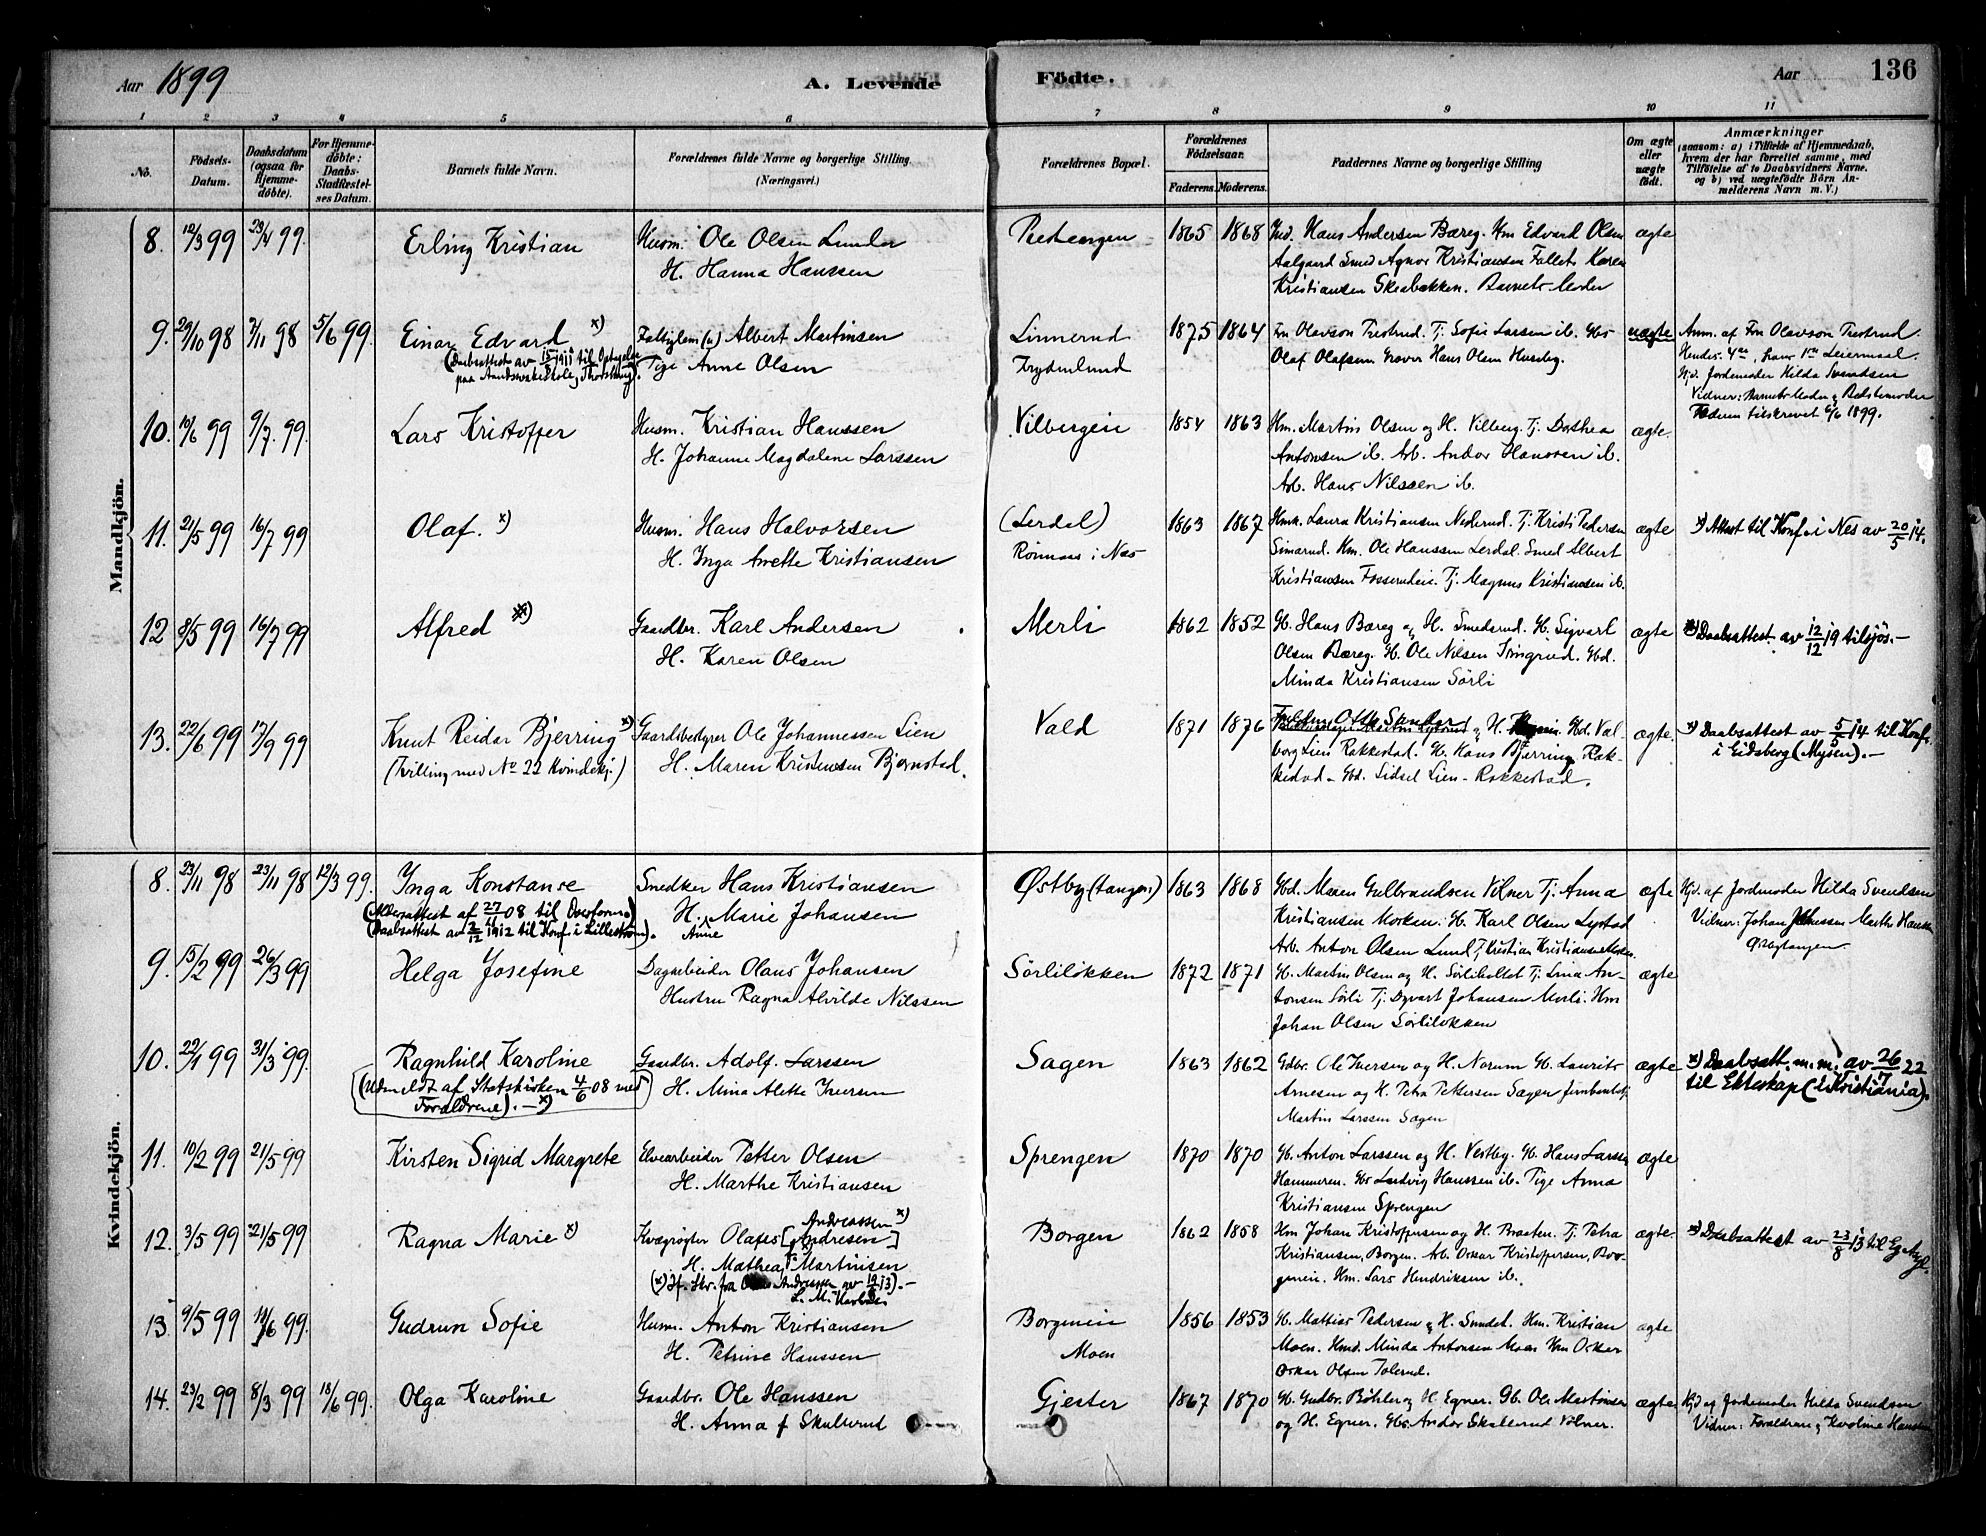 Aar 1899
A. Levende
Födte.
Aar
136
1 2 3 4 5 6 7 8 9 10 11
No.
Födsels-
Datum.
Daabsdatum
(ogsaa for
Hjemme-
döbte).
For Hjemme-
döbte:
Daabs-
Stadfæstel-
ses Datum.
Barnets fulde Navn.
Forældrenes fulde Navne og borgerlige Stilling.
(Næringsvei.)
Forældrenes Bopæl.
Forældrenes
Födselsaar.
Faderens. Moderens.
Faddernes Navne og borgerlige Stilling
Om ægte
eller
uægte
födt.
Anmærkninger
(saasom: a) i Tilfælde af Hjemmedaab,
hvem der har forrettet samme, med
Tilföielse af to Daabsvidners Navne,
og b) ved uægtefödte Börn An-
melderens Navn m. V.)
Mandkjön.
8. 12/3 99 23/4 99. Erling Kristian Husm. Ole Olsen
H. Hanna Hanssen
1865 1868 Hans Andersen Bæreg. Hm Edvard Olsen
Aalgaard Smed Agnor Kristiansen Fallet Karen
Kristiansen Skeabakken. Barnets Moder
ægte
9. 29/10 98 7/11 98 5/6 99. Einar Edvard x)
(Daabsattest av 15/8 1911 til Optagelse
paa
Albert Martinsen
Tige Anne Olsen
Linnerud
Frydenlund
1875 1864 Fm Olavson Trostrud. Tj. Sofie Larsen ib. Gbs
Olaf Olafsen Hans Olsen Husby.
uægte
Anm. af Fm Olavson Trostrud.
Hendes 4de, hans 1ste Leiermaal.
Hjd. Jordemoder Hilda Svendsen
Vidner: Barnets Moder og Bedstemoder
Faderen tilskrevet 6/6 1899.
10. 10/6 99 9/7. 99. Lars Kristoffer Husm. Kristian Hanssen
H. Johanne Magdalene Larssen
Vilbergeie 1854 1863 Hm. Martin Olsen og H. Vilberg. Tj. Dorthea
Antonsen ib. Arb. Andor Hanssen ib.
Arb. Hans Nilssen ib.
ægte.
11. 21/5 99 16/7 99 Olaf. x) Husm. Hans Halvorsen
H. Inga Anette Kristiansen
(Lerdal)
Rönnaas i Nes
1863 1867 Hmk. Laura Kristiansen Nederud. Tj. Kristi Pedersen
Simarud. Hm. Ole Hanssen Lerdal. Smed Albert
Kristiansen Fossumeie. Tj. Magnus Kristiansen ib.
ægte
x) Attest til Konf. i Nes av 20/5 14.
12 8/5 99 16/7 99 Alfred x) Gaardbr. Karl Andersen
H. Karen Olsen
Merli 1862 1852 Gb. Hans Bæreg og H. Smedsrud. Gb. Sigvart
Olsen Bæreg. Gb. Ole Nilsen Gbd.
Minda Kristiansen Sörli
ægte
x) Daabsattest av 12/12 19 tilsjös. —
13. 22/6 99 17/9 99 Knut Reidar Bjerring x)
(Tvilling med No 22 Kvindekj.)
Gaardsbestyrer Ole Johannessen Lien
H. Maren Kristensen Bjørnstad.
Vald 1871 1876 og H. Gbd. Val-
borg Lien Rakkestad. Gb. Hans Bjerring Rak-
kestad — Gbd. Sidsel Lien — Rakkestad.
ægte.
x) Daabsattest av 5/5 14 til Konf.
i Eidsberg (Mysen). —
Kvindekjön.
8. 23/11 98 23/11 98 12/3 99. Inga Konstanse
(Aldersattest af 27/11 08 til Overform.)
(Daabsattest av 2/12 1912 til Konf. i Lilleström).
Snedker Hans Kristiansen
H. Marie Johansen
Anne
Østby (tangen) 1863 1868 Gbd. Maren Gulbrandsen Vilner Tj. Anna
Kristiansen Morken. Gb. Karl Olsen Lystad
Arb. Anton Olsen Lund, Tj. Kristian Kristiansen
ægte
Hjd. af Jordemoder Hilda Svendsen
Vidner: Johan Marthe
Østbytangen
9. 15/2 99 26/3 99 Helga Josefine Dagarbeider Olaus Johansen
Hustru Ragna Alvilde Nilssen
Sörliløkken 1872 1871 Gb. Martin Olsen og H. Tj. Lina An-
tonsen Sörli Tj. Dyvart Johansen Merli. Hm
Johan Olsen Sörliløkken
ægte
10. 22/1 99 31/3 99. Ragnhild Karoline
(Udmeldt af Statskirken 4/6 08 med
Forældrene). — x)
Gaardbr. Adolf Larssen
H. Mina Alette Iversen
Sagen 1863 1862 Gdbr. Ole Iversen og H. Norum Gb. Laurits
Arnesen og H. Petra Pettersen Sagen
Martin Larssen Sagen
ægte
x) Daabsatt. m. m. av 26/7 22
til Ekteskap (i Kristiania).
11. 10/2 99 21/5 99 Kirsten Sigrid Margrete Elvearbeider Petter Olsen
H. Marthe Kristiansen
Sprengen 1870 1870 Gb. Anton Larssen og H. Vestby. Gb. Hans Larssen
Hammeren. Gbs Ludvig Hanssen ib. Tige Anna
Kristiansen Sprengen
ægte
12. 3/5 99 21/5 99 Ragna Marie x) Kvægrögter Olaves [Andresen]
Andreassen x)
H. Mathea Martinsen
(x) Jf. Skr. fra Andreassen av 12/8 13). —
Borgen 1862 1858 Hm Johan Kristoffersen og H. Braaten. Tj. Petra
Kristiansen, Borgen. Arb. Oskar Kristoffersen, Bor-
geneie. Hm. Lars Hendriksen ib.
ægte.
x) Daabsattest av 23/8 13 til
13. 9/5 99 11/6 99. Gudrun Sofie Husm. Anton Kristiansen
H. Petrine Hanssen
Borgeneie
Moen
1856 1853 Gb. Mathias Pedersen og H. Sundet. Hm. Kristian
Moen. Hmd. Minda Antonsen Moen Hm Oskar
Oskar Olsen Tolerud.
ægte
14. 23/2 99 8/3 99 18/6 99. Olga Karoline Gaardbr. Ole Hanssen
H. Anna f Skallerud
Gjester 1867 1870 Gb. Gudbr. Böhler og H. Egner. Gb. Ole Martinsen
og H. Egner. Gbs. Andor Skallerud Vilner.
ægte
Hjd af Jordemoder Hilda Svendsen
Vidner: Forældrene og Karoline